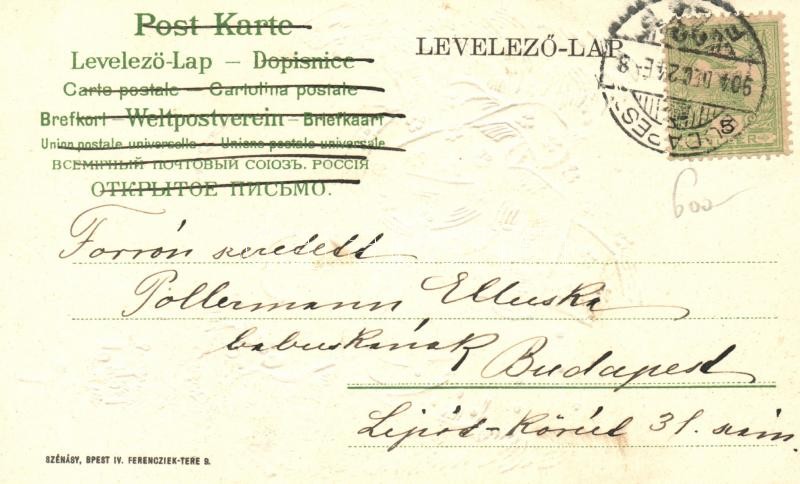 Post Karte
Levelező-Lap – Dopisnice
Carte postale – Cartolina postale
Brefkort – Weltpostverein – Briefkaart
Union postale universelle – Unione postale universale
ВСЕМІРНЫЙ ПОЧТОВЫЙ СОЮЗЪ. РОССІЯ
ОТКРЫТОЕ ПИСЬМО.
LEVELEZŐ-LAP
BUDAPEST
904 DEC 24
600
Forrón szeretett
Pollermann Elluska
babuskának
Budapest
Lipód-Körút 31. szám.
SZÉNÁSY, BPEST IV. FERENCZIEK-TERE 9.